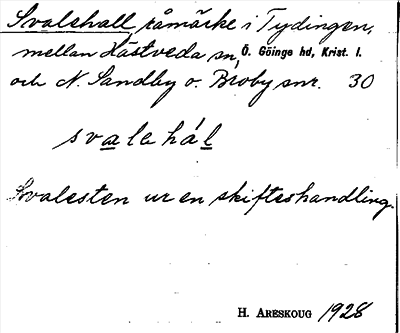 Svalehall, råmärke i Tydingen,
mellan Hästveda sn, Ö. Göinge hd, Krist. l.
och N. Sandby o. Broby snr. 30
svalehál
Svalesten ur en skifteshandling.
H. ARESKOUG 1928